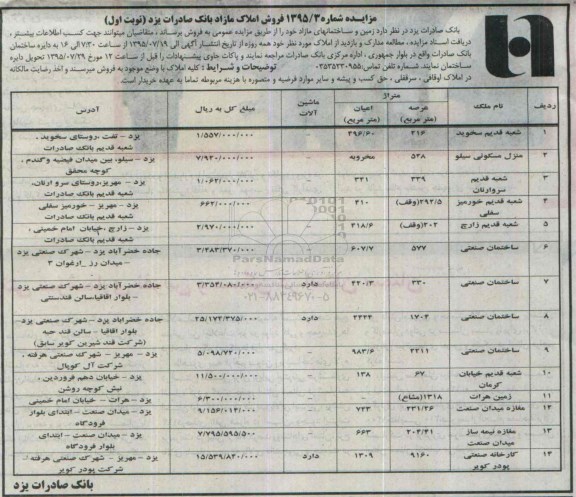 مزایده شماره ۱۳۹۵/۳ فروش املاک مازاد بانک صادرات یزد (نوبت اول)
بانک صادرات یزد در نظر دارد زمین و ساختمانهای مازاد خود را از طریق مزایده عمومی به فروش برساند، متقاضیان میتوانند جهت کسب اطلاعات بیشتر،
دریافت اسناد مزایده، مطالعه مدارک و بازدید از املاک مورد نظر خود همه روزه از تاریخ انتشار آگهی الی ۱۳۹۵/۰۷/۱۹ از ساعت ۷/۳۰ الی ۱۶ به دایره ساختمان
بانک صادرات واقع در بلوار جمهوری، اداره مرکزی بانک صادرات مراجعه نمایند و پاکات حاوی پیشنهادات را قبل از ساعت ۱۲ مورخ ۱۳۹۵/۰۷/۲۹ تحویل دایره
ساختمان نمایند. شماره تلفن تماس: ۰۳۵۳۵۲۳۰۹۵۵ توضیحات و شرایط: کلیه املاک با وضع موجود به فروش میرسند و اخذ رضایت مالکانه
در املاک اوقافی، سرقفلی، حق کسب و پیشه و سایر موارد فرضیه و متصوره با هزینه مربوطه تماما به عهده خریدار است.
ردیف نام ملک متراژ عرصه (متر مربع) اعیان (متر مربع) ماشین آلات مبلغ کل به ریال آدرس
۱ شعبه قدیم سخوید ۳۱۶ ۳۹۶/۶۰ – ۱/۵۵۷/۰۰۰/۰۰۰ یزد – تفت، روستای سخوید، شعبه قدیم بانک صادرات
۲ منزل مسکونی سیلو ۵۲۸ مخروبه – ۷/۹۲۰/۰۰۰/۰۰۰ یزد – سیلو، بین میدان فیضیه و گندم، کوچه محقق
۳ شعبه قدیم سروارتان ۳۳۹ ۳۴۱ – ۱/۰۶۲/۰۰۰/۰۰۰ یزد – مهریز، روستای سرو ارتان، شعبه قدیم بانک صادرات
۴ شعبه قدیم خورمیز سفلی ۲۹۲/۵ (وقف) ۳۱۰ – ۶۶۲/۰۰۰/۰۰۰ یزد – مهریز – خورمیز سفلی شعبه قدیم بانک صادرات
۵ شعبه قدیم زارچ ۳۰۲ (وقف) ۳۱۸/۶ – ۲/۹۷۰/۰۰۰/۰۰۰ یزد – زارچ، خیابان امام خمینی، شعبه قدیم بانک صادرات
۶ ساختمان صنعتی ۵۷۷ ۶۰۷/۷ – ۳/۴۸۳/۳۷۰/۰۰۰ جاده خضرآباد یزد – شهرک صنعتی یزد – میدان رز – ارغوان ۳
۷ ساختمان صنعتی ۳۳۰ ۲۲۰/۳ دارد ۳/۳۵۴/۰۸۰/۰۰۰ جاده خضرآباد یزد – شهرک صنعتی یزد – بلوار اقاقیا
۸ ساختمان صنعتی ۱۷۰۴ ۲۴۴۴ دارد ۲۵/۱۷۲/۳۷۵/۰۰۰ جاده خضرآباد یزد – شهرک صنعتی یزد – بلوار اقاقیا – سالن قند حبه (شرکت قند شیرین کویر سابق)
۹ ساختمان صنعتی ۲۲۱۱ ۹۸۳/۶ – ۵/۰۹۸/۷۲۰/۰۰۰ یزد – مهریز – شهرک صنعتی هرفته، شرکت آل کوپال
۱۰ شعبه قدیم خیابان کرمان ۶۷ ۱۳۸ – ۱۱/۵۰۰/۰۰۰/۰۰۰ یزد – خیابان دهم فروردین، نبش کوچه روشن
۱۱ زمین هرات ۱۳۱۸ (مشاع) – – ۶/۳۰۰/۰۰۰/۰۰۰ یزد – هرات – خیابان امام خمینی
۱۲ مغازه میدان صنعت ۲۳۱/۲۶ ۷۲۳ – ۹/۱۵۶/۰۱۲/۰۰۰ یزد – میدان صنعت – ابتدای بلوار فرودگاه
۱۳ مغازه نیمه ساز میدان صنعت ۲۰۲/۴۱ ۶۶۳ – ۷/۷۹۵/۵۹۵/۵۰۰ یزد – میدان صنعت – ابتدای بلوار فرودگاه
۱۴ کارخانه صنعتی پودر کویر ۹۱۶۰ ۱۳۰۹ دارد ۱۵/۵۳۹/۸۲۰/۰۰۰ یزد – مهریز – شهرک صنعتی هرفته – شرکت پودر کویر
ParsNamadData
۰۲۱-۸۸۳۴۹۶۷۰-۵
بانک صادرات یزد